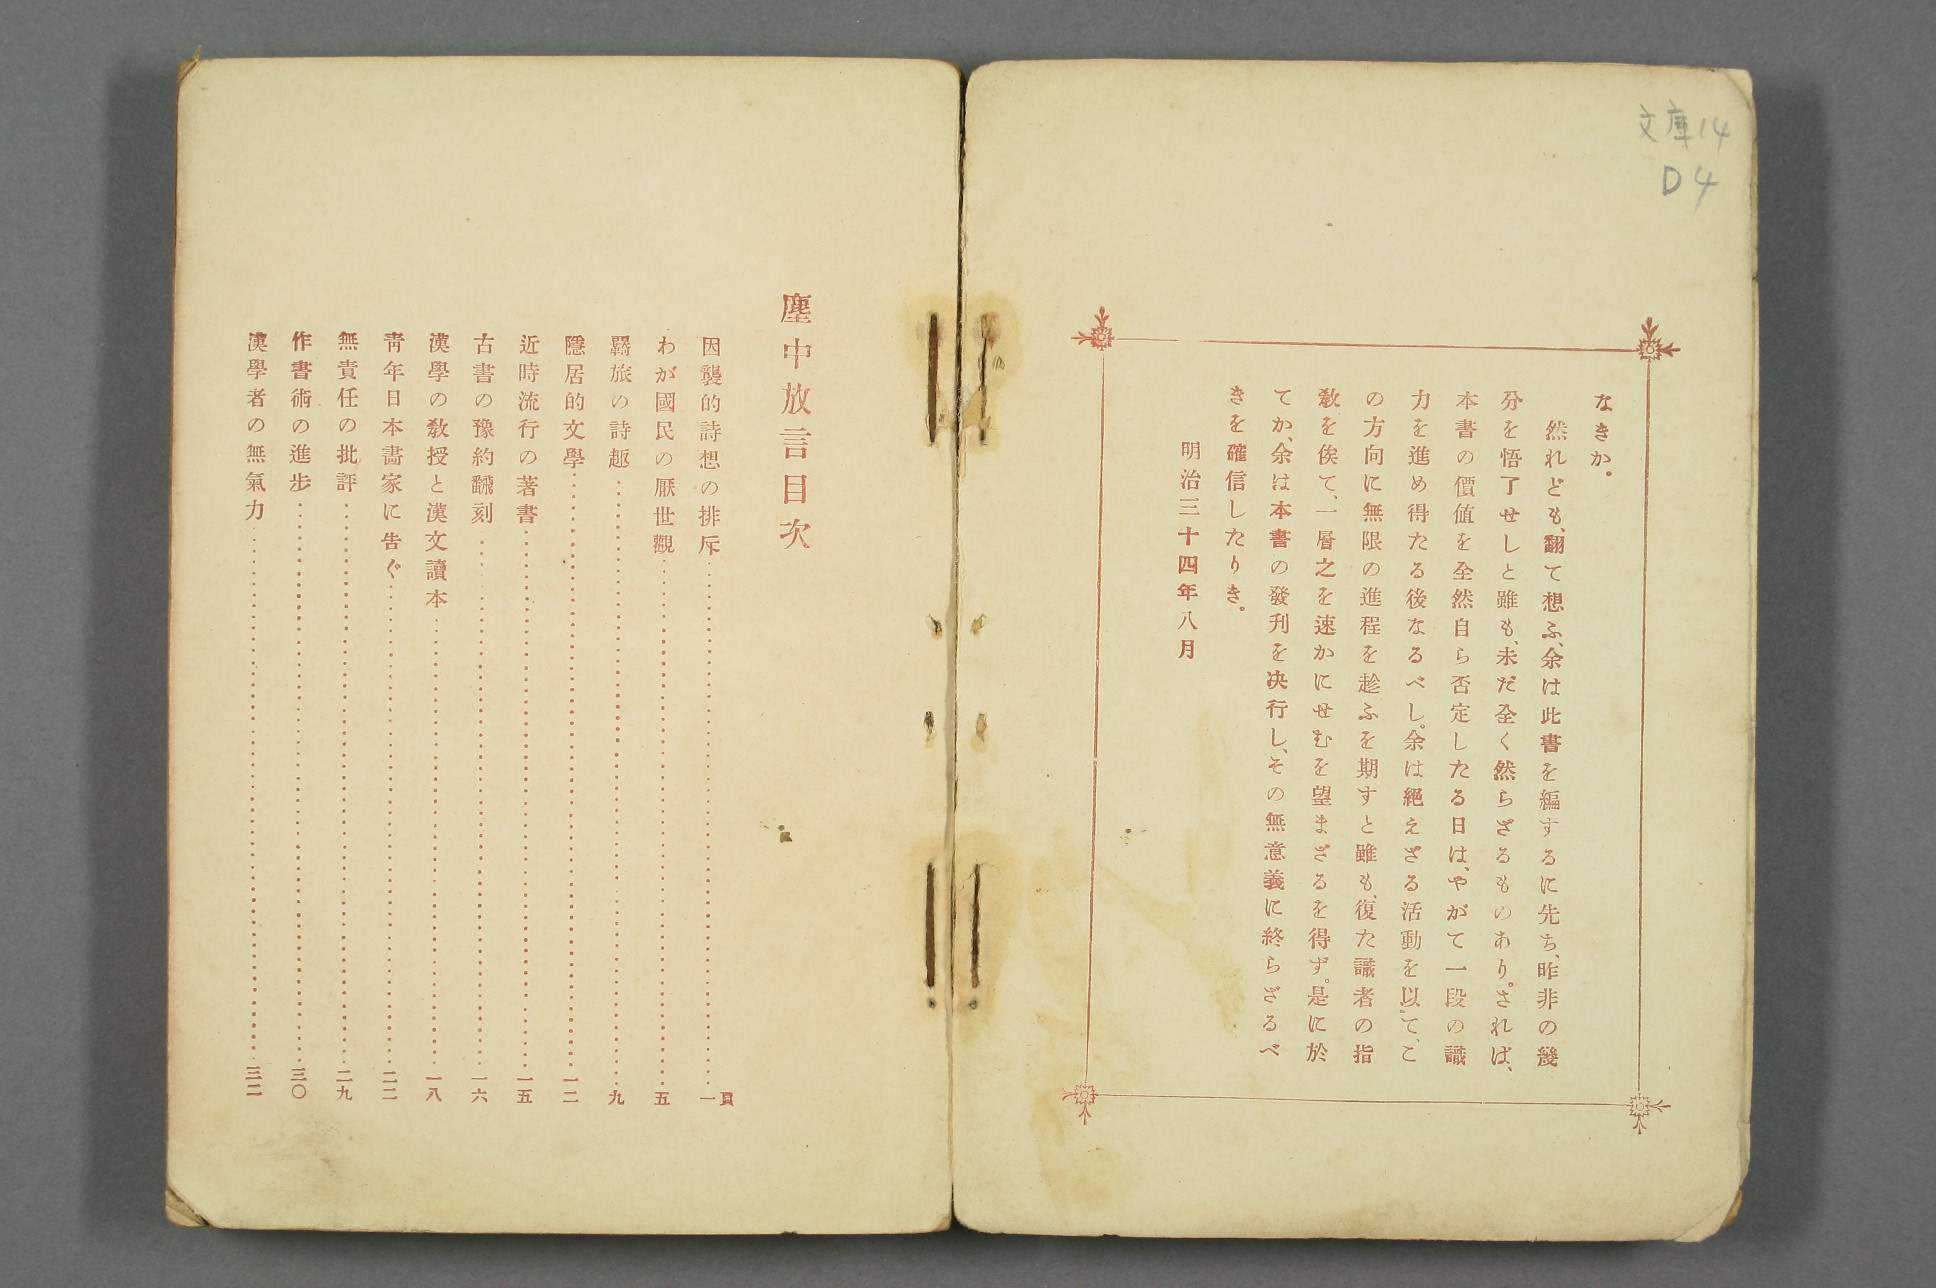 文庫14
D4
なきか。
然れども、翻て想ふ、余は此書を編するに先ち、昨非の幾
分を悟了せしと雖も、未だ全く然らざるものあり。されば、
本書の價値を全然自ら否定したる日は、やがて一段の識
力を進め得たる後なるべし。余は絕えざる活動を以て、こ
の方向に無限の進程を趁ふを期すと雖も、復た識者の指
敎を俟て、一層之を速かにせむを望まざるを得ず。是に於
てか、余は本書の發刊を决行し、その無意義に終らざるべ
きを確信したりき。
明治三十四年八月
塵中放言目次
頁
因襲的詩想の排斥……一
わが國民の厭世觀……五
羇旅の詩趣……九
隱居的文學……一二
近時流行の著書……一五
古書の豫約飜刻……一六
漢學の敎授と漢文讀本……一八
靑年日本畵家に告ぐ……二二
無責任の批評……二九
作書術の進步……三〇
漢學者の無氣力……三二